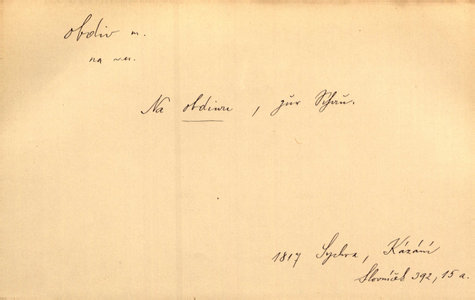 obdiv m.
na ~u.
Na obdivu, zur Schau.
1817 Sychra, Kázání
Slovníček 392, 15 a.